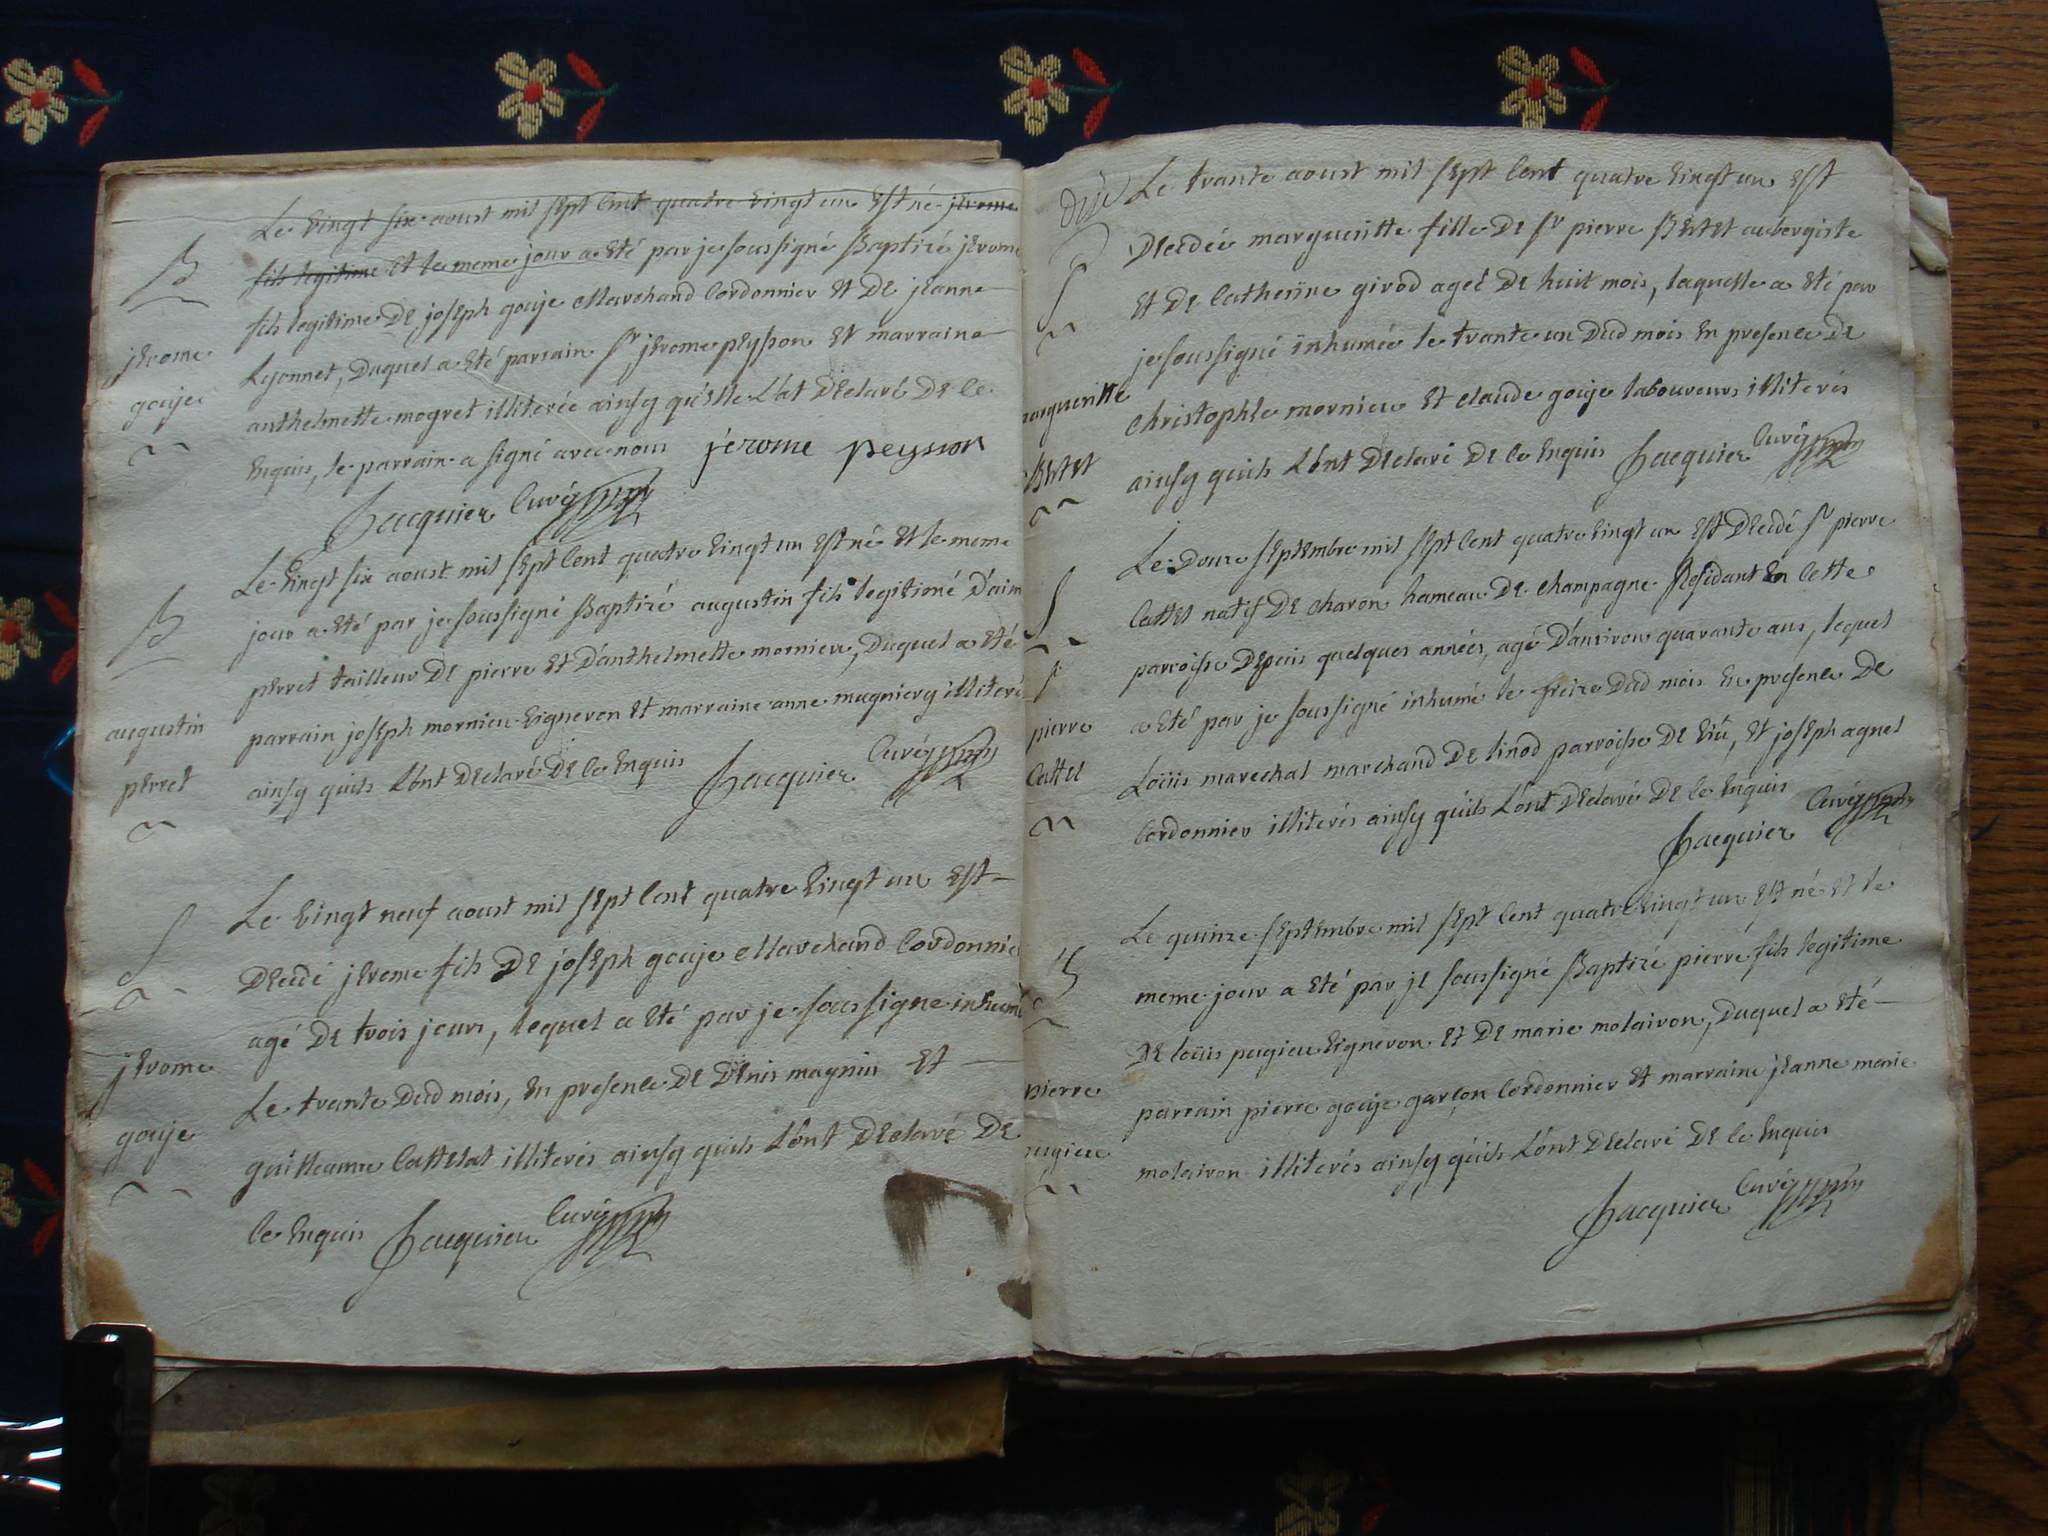 Le vingt six aoust mil sept cent quatre vingt un est né jerome
fils legitime et le meme jour a eté par je soussigné Baptizé jerome
fils legitime de joseph gouje Marchand cordonnier et de jeanne
Lyonnet, duquel a eté parrain Sr jerome peysson et marraine
anthelmette mogret illiterée ainsy qu'elle l'at declaré de ce
enquis, le parrain a signé avec nous jerome peysson
Jacquier Curé
B
jerome
gouje
Le vingt six aoust mil sept cent quatre vingt un est né et le meme
jour a eté par je soussigné Baptizé augustin fils legitime d'aim
perret tailleur de pierre et d'anthelmette mornieu, duquel a eté
parrain joseph mornieu vigneron et marraine anne mugniery illiteré
ainsy quils l'ont declaré de ce enquis Jacquier Curé
B
augustin
perret
Le vingt neuf aoust mil sept cent quatre vingt un est
decedé jerome fils de joseph gouje Marchand cordonnie
agé de trois jours, lequel a eté par je soussigné inhumé
Le trante dud mois, en presence de denis magnin et
guilleaume cattelat illiterés ainsy quils l'ont declaré de
ce enquis Jacquier Curé
S
jerome
gouje
Le trante aoust mil sept cent quatre vingt un est
decedée margueritte fille de Sr pierre Bertet aubergiste
et de catherine girod ageé de huit mois, laquelle a eté par
je soussigné inhumée le trante un dud mois en presence de
christophle mornieu et claude gouje laboureurs illiterés
ainsy quils l'ont declaré de ce enquis Jacquier Curé
margueritte
Bertet
Le douze septembre mil sept cent quatre vingt un est decedé Sr pierre
cattel natif de charon hameau de champagne Residant en cette
parroisse depuis quelques années, agé d'anviron quarante ans, lequel
a eté par je soussigné inhumé le treize dud mois en presence de
Loüis marechal marchand de linod parroisse de viû, et joseph agnel
cordonnier illiterés ainsy qu'ils l'ont declaré de ce enquis
Jacquier Curé
S
Sr
pierre
cattel
Le quinze septembre mil sept cent quatre vingt un est né et le
meme jour a eté par je soussigné Baptizé pierre fils legitime
de loüis pugieu vigneron et de marie molairon, duquel a eté
parrain pierre gouje garçon cordonnier et marraine jeanne marie
molairon illiterés ainsy qu'ils l'ont declaré de ce enquis
Jacquier Curé
B
pierre
pugieu